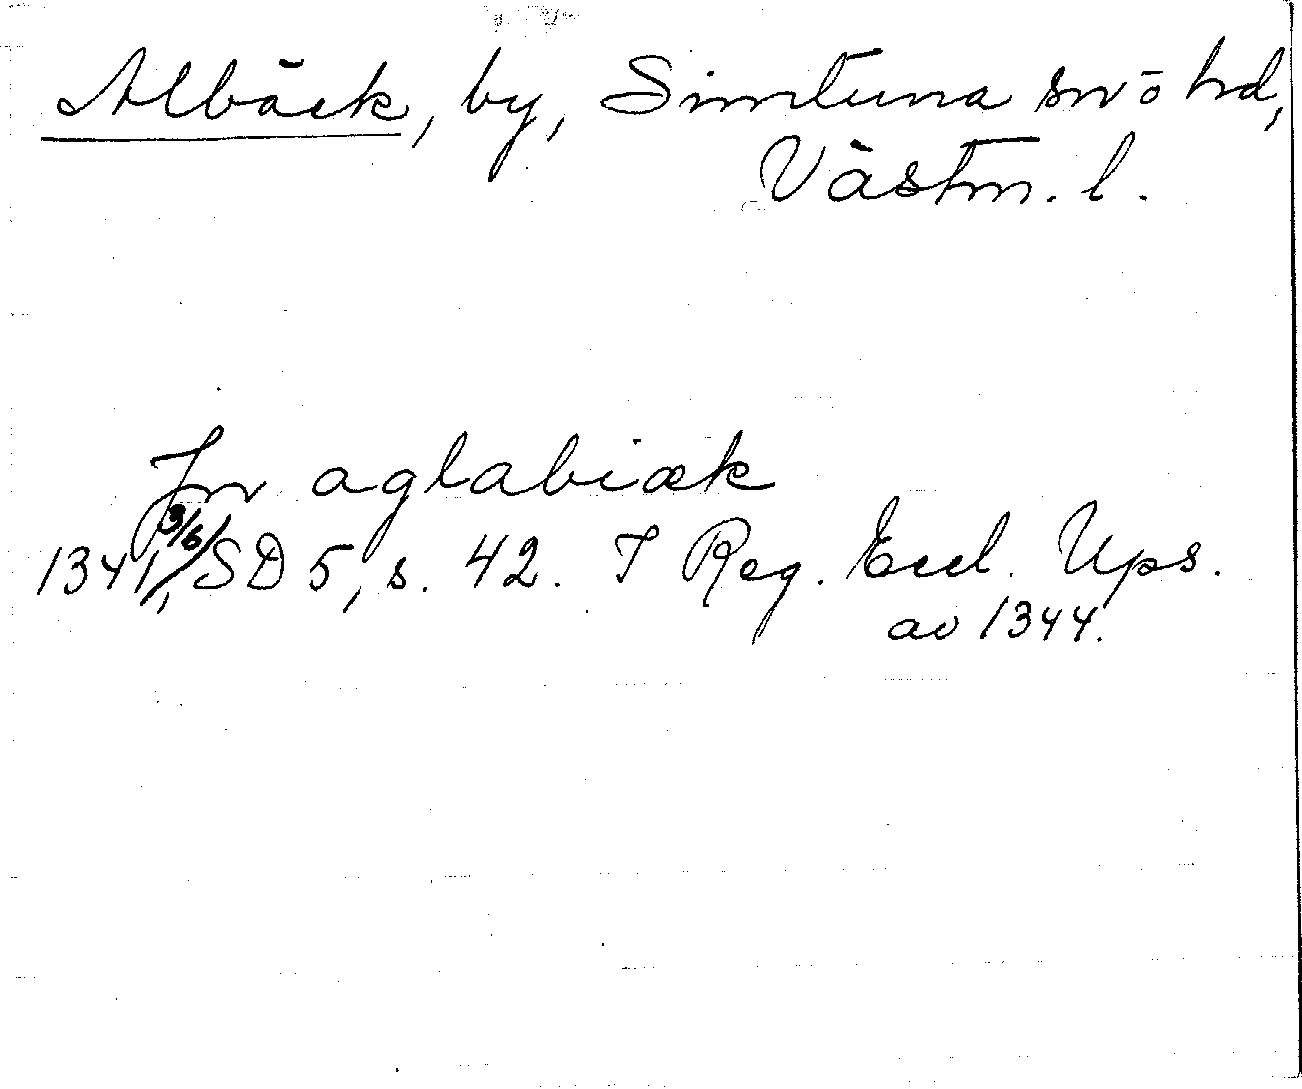 Albäck, by, Simtuna sn o hd,
Västm. l.
Jn aglabiæk
1341 3/6, SD 5, s. 42. I Reg. Eccl. Ups.
av 1344.